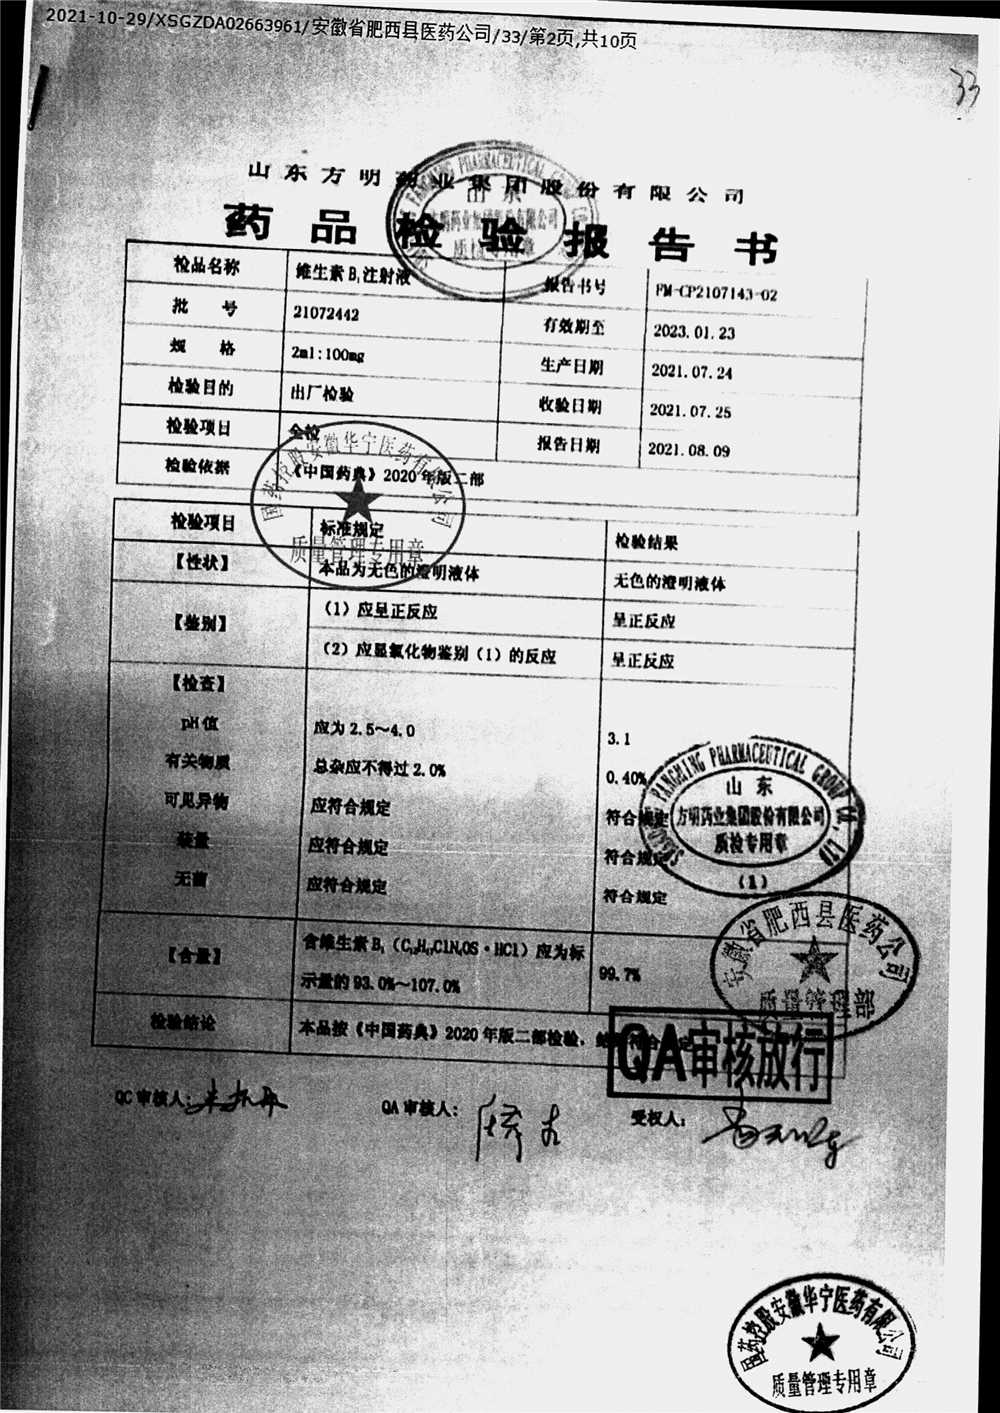 2021-10-29/XSGZDA02663961/安徽省肥西县医药公司/33/第2页,共10页
33
山东方明药业集团股份有限公司
药品检验报告书
检品名称 维生素B₁注射液 报告书号 FM-CP2107143-02
批号 21072442 有效期至 2023.01.23
规格 2ml:100mg 生产日期 2021.07.24
检验目的 出厂检验 收验日期 2021.07.25
检验项目 全检 报告日期 2021.08.09
检验依据 《中国药典》2020年版二部
国药控股安徽华宁医药有限公司
质量管理专用章
检验项目 标准规定 检验结果
【性状】 本品为无色的澄明液体 无色的澄明液体
【鉴别】 (1)应呈正反应 呈正反应
(2)应显氯化物鉴别(1)的反应 呈正反应
【检查】
pH值 应为2.5～4.0 3.1
有关物质 总杂应不得过2.0% 0.40%
可见异物 应符合规定 符合规定
装量 应符合规定 符合规定
无菌 应符合规定 符合规定
PHARMACEUTICAL GROUP CO., LTD
山东
方明药业集团股份有限公司
质检专用章
(1)
【含量】 含维生素B₁(C₁₂H₁₇ClN₄OS·HCl)应为标示量的93.0%～107.0% 99.7%
安徽省肥西县医药公司
质量管理部
检验结论 本品按《中国药典》2020年版二部检验,结果符合规定
QA审核放行
QC审核人: QA审核人: 受权人:
国药控股安徽华宁医药有限公司
质量管理专用章